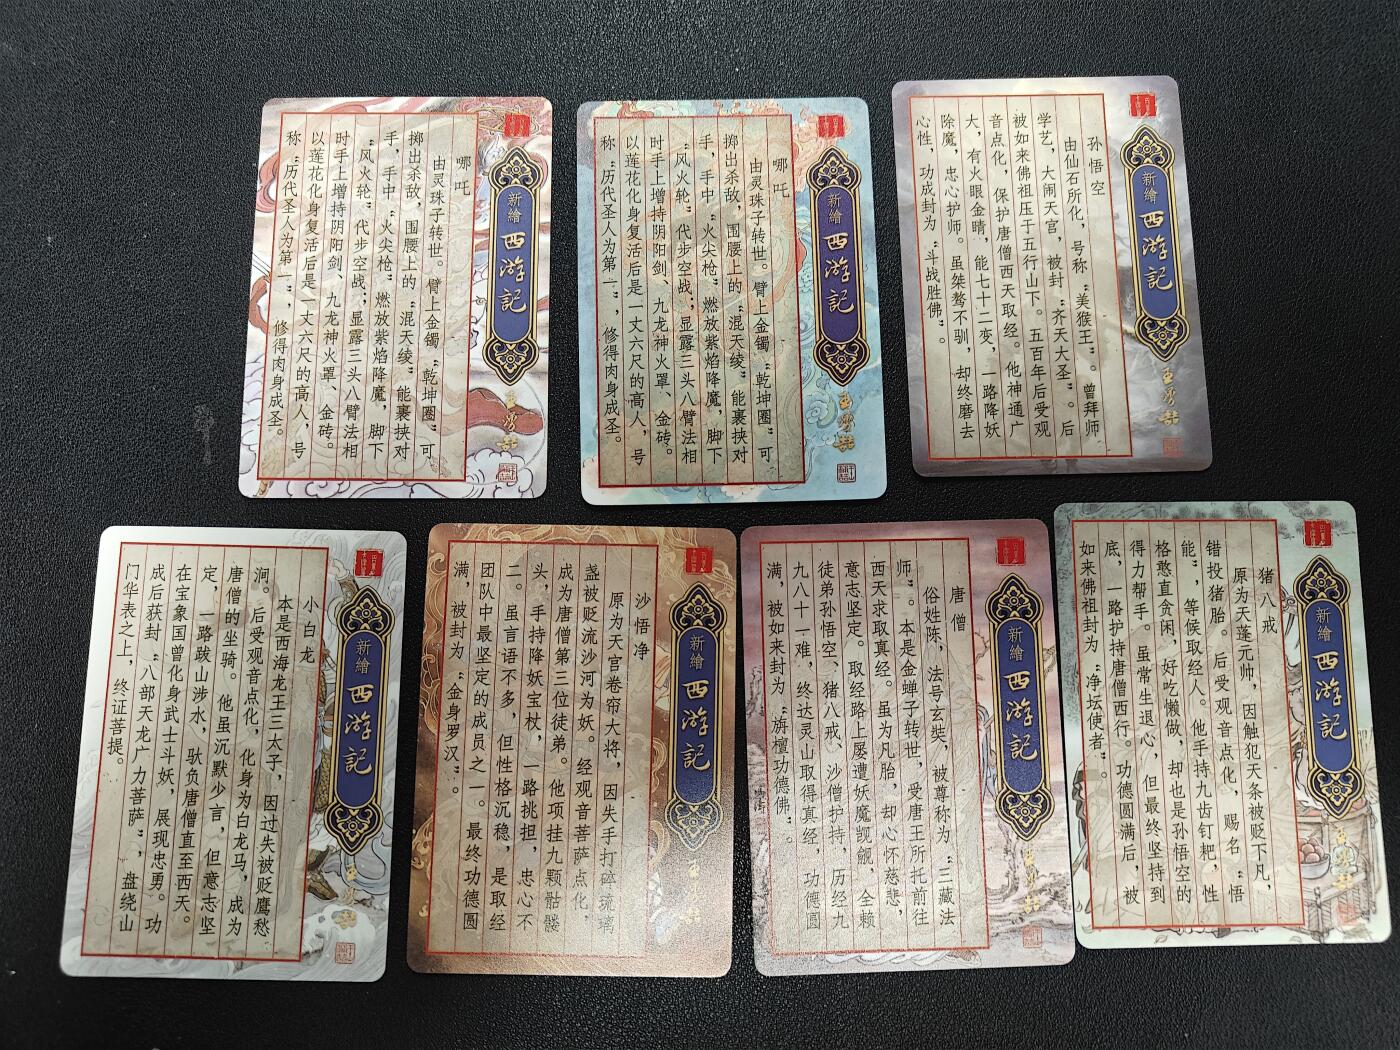 哪吒
由灵珠子转世。臂上金镯“乾坤圈”可
掷出杀敌，围腰上的“混天绫”能裹挟对
手，手中“火尖枪”燃放紫焰降魔，脚下
“风火轮”代步空战；显露三头八臂法相
时手上增持阴阳剑、九龙神火罩、金砖。
以莲花化身复活后是一丈六尺的高人，号
称“历代圣人为第一”，修得肉身成圣。
新繪西游記
哪吒
由灵珠子转世。臂上金镯“乾坤圈”可
掷出杀敌，围腰上的“混天绫”能裹挟对
手，手中“火尖枪”燃放紫焰降魔，脚下
“风火轮”代步空战；显露三头八臂法相
时手上增持阴阳剑、九龙神火罩、金砖。
以莲花化身复活后是一丈六尺的高人，号
称“历代圣人为第一”，修得肉身成圣。
新繪西游記
孙悟空
由仙石所化，号称“美猴王”。曾拜师
学艺，大闹天宫，被封“齐天大圣”。后
被如来佛祖压于五行山下。五百年后受观
音点化，保护唐僧西天取经。他神通广
大，有火眼金睛，能七十二变，一路降妖
除魔，忠心护师。虽桀骜不驯，却终磨去
心性，功成封为“斗战胜佛”。
新繪西游記
小白龙
本是西海龙王三太子，因过失被贬鹰愁
涧。后受观音点化，化身为白龙马，成为
唐僧的坐骑。他虽沉默少言，但意志坚
定，一路跋山涉水，驮负唐僧直至西天。
在宝象国曾化身武士斗妖，展现忠勇。功
成后获封“八部天龙广力菩萨”，盘绕山
门华表之上，终证菩提。
新繪西游記
沙悟净
原为天宫卷帘大将，因失手打碎琉璃
盏被贬流沙河为妖。经观音菩萨点化，
成为唐僧第三位徒弟。他项挂九颗骷髅
头，手持降妖宝杖，一路挑担，忠心不
二。虽言语不多，但性格沉稳，是取经
团队中最坚定的成员之一。最终功德圆
满，被封为“金身罗汉”。
新繪西游記
唐僧
俗姓陈，法号玄奘，被尊称为“三藏法
师”。本是金蝉子转世，受唐王所托前往
西天求取真经。虽为凡胎，却心怀慈悲，
意志坚定。取经路上屡遭妖魔觊觎，全赖
徒弟孙悟空、猪八戒、沙僧护持，历经九
九八十一难，终达灵山取得真经，功德圆
满，被如来封为“旃檀功德佛”。
新繪西游記
猪八戒
原为天蓬元帅，因触犯天条被贬下凡，
错投猪胎。后受观音点化，赐名“悟
能”，等候取经人。他手持九齿钉耙，性
格憨直贪闲，好吃懒做，却也是孙悟空的
得力帮手。虽常生退心，但最终坚持到
底，一路护持唐僧西行。功德圆满后，被
如来佛祖封为“净坛使者”。
新繪西游記